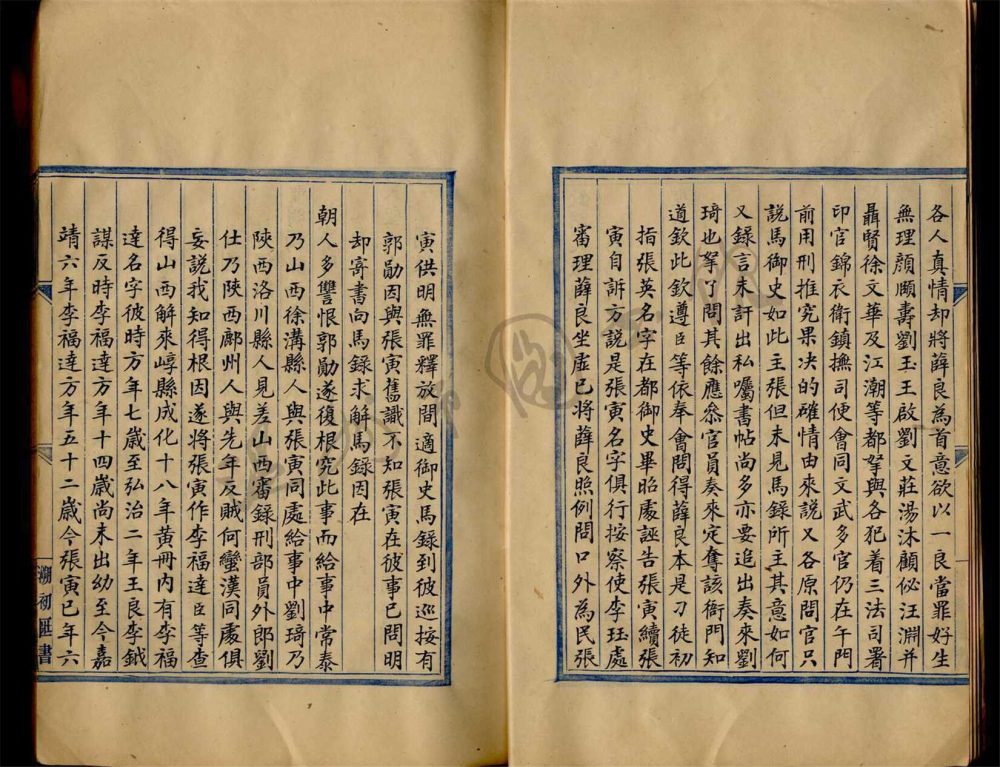 各人真情却將薛良為首意欲以一良當罪好生
無理顔頤壽劉玉王啟劉文莊湯沐顧佖汪淵并
聶賢徐文華及江潮等都拏與各犯着三法司署
印官錦衣衛鎮撫司使會同文武多官仍在午門
前用刑推究果决的確情由來說又各原問官只
說馬御史如此主張但未見馬錄所主其意如何
又錄言未訐出私囑書帖尚多亦要追出奏來劉
琦也拏了問其餘應叅官員奏來定奪該衙門知
道欽此欽遵臣等依奉會問得薛良本是刀徒初
指張英名字在都御史畢昭處誣告張寅續張
寅自訴方說是張寅名字俱行按察使李珏處
審理薛良坐虛已將薛良照例問口外為民張
寅供明無罪釋放間適御史馬錄到彼巡按有
郭勛因與張寅舊識不知張寅在彼事已問明
却寄書向馬錄求解馬錄因在
朝人多讐恨郭勛遂復根究此事而給事中常泰
乃山西徐溝縣人與張寅同處給事中劉琦乃
陝西洛川縣人見差山西審錄刑部員外郎劉
仕乃陝西鄜州人與先年反賊何蠻漢同處俱
妄說我知得根因遂將張寅作李福達臣等查
得山西解來崞縣成化十八年黃冊内有李福
達名字彼時方年七歲至弘治二年王良李鉞
謀反時李福達方年十四歲尚未出幼至今嘉
靖六年李福達方年五十二歲今張寅已年六
湖初匪書